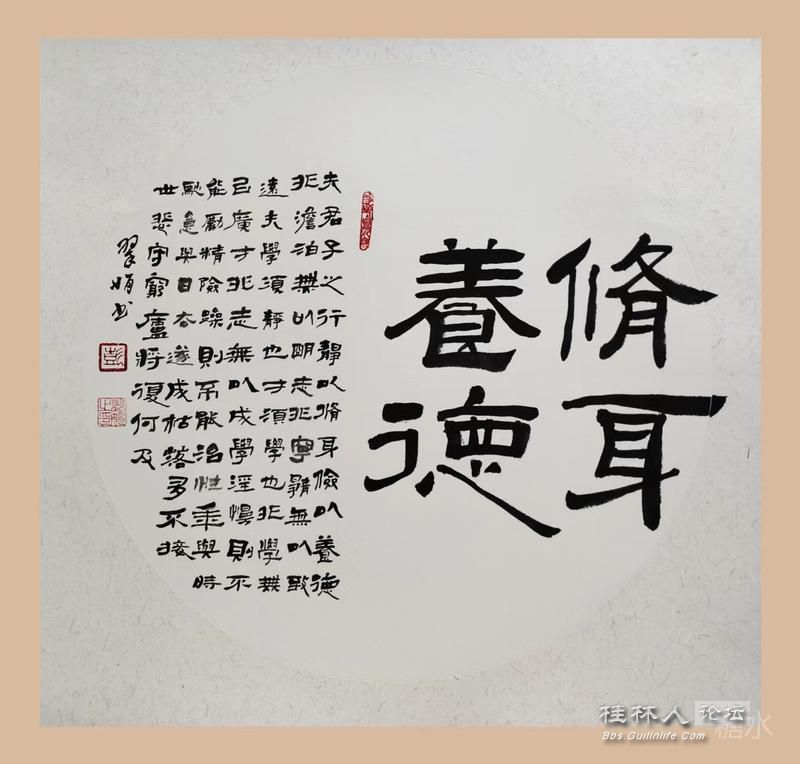 脩身
養德
夫君子之行靜以脩身儉以養德
非澹泊無以明志非寧靜無以致
遠夫學須靜也才須學也非學無
以廣才非志無以成學淫慢則不
能勵精險躁則不能治性年與時
馳意與日去遂成枯落多不接
世悲守窮廬將復何及
翠娟书
彭
桂林人论坛
Bbs.Guilinlife.com
糖水